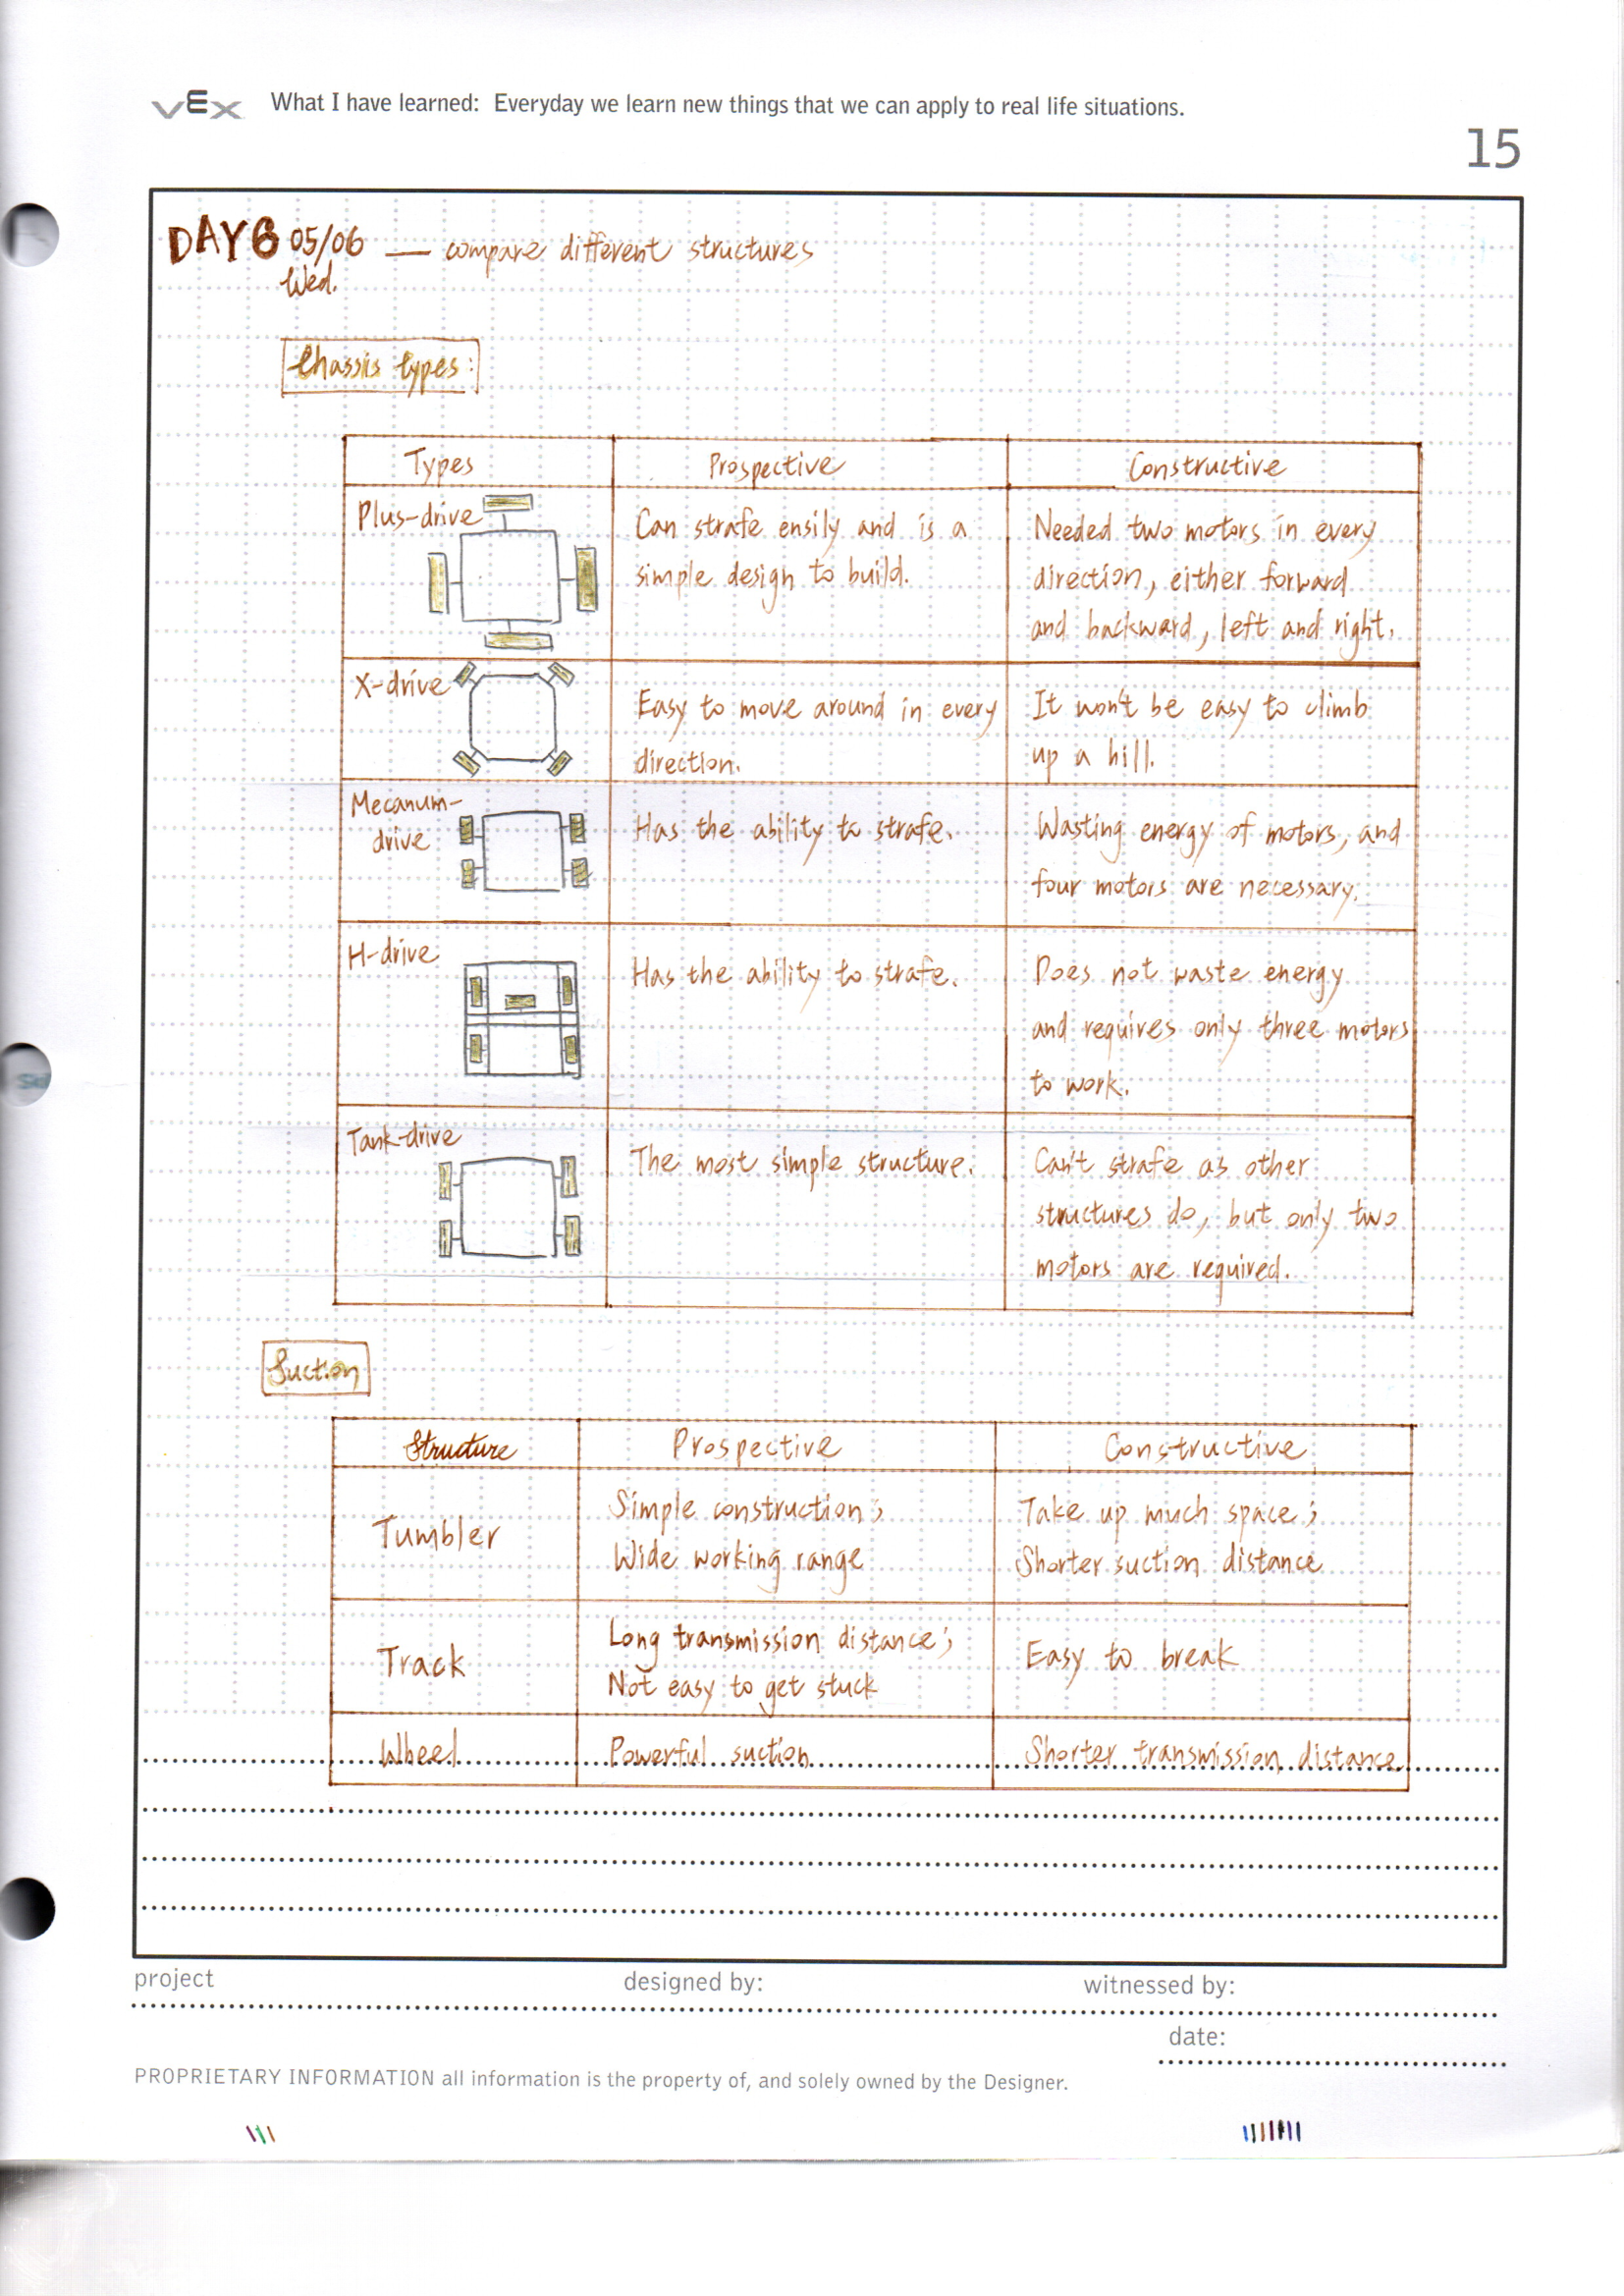 vEx What I have learned: Everyday we learn new things that we can apply to real life situations.
15
DAY6 05/06 — compare different structures
Wed.
Chassis types:
Types Prospective Constructive
Plus-drive
Can strafe ensily and is a
simple design to build.
Needed two motors in every
direction, either forward
and backward, left and right.
X-drive
Easy to move around in every
direction.
It won't be easy to climb
up a hill.
Mecanum-
drive
Has the ability to strafe.
Wasting energy of motors, and
four motors are necessary.
H-drive
Has the ability to strafe.
Does not waste energy
and requires only three motors
to work.
Tank-drive
The most simple structure.
Can't strafe as other
structures do, but only two
motors are required.
Suction
Structure Prospective Constructive
Tumbler
Simple construction;
Wide working range
Take up much space;
Shorter suction distance
Track
Long transmission distance;
Not easy to get stuck
Easy to break
Wheel Powerful suction Shorter transmission distance
project designed by: witnessed by:
date:
PROPRIETARY INFORMATION all information is the property of, and solely owned by the Designer.